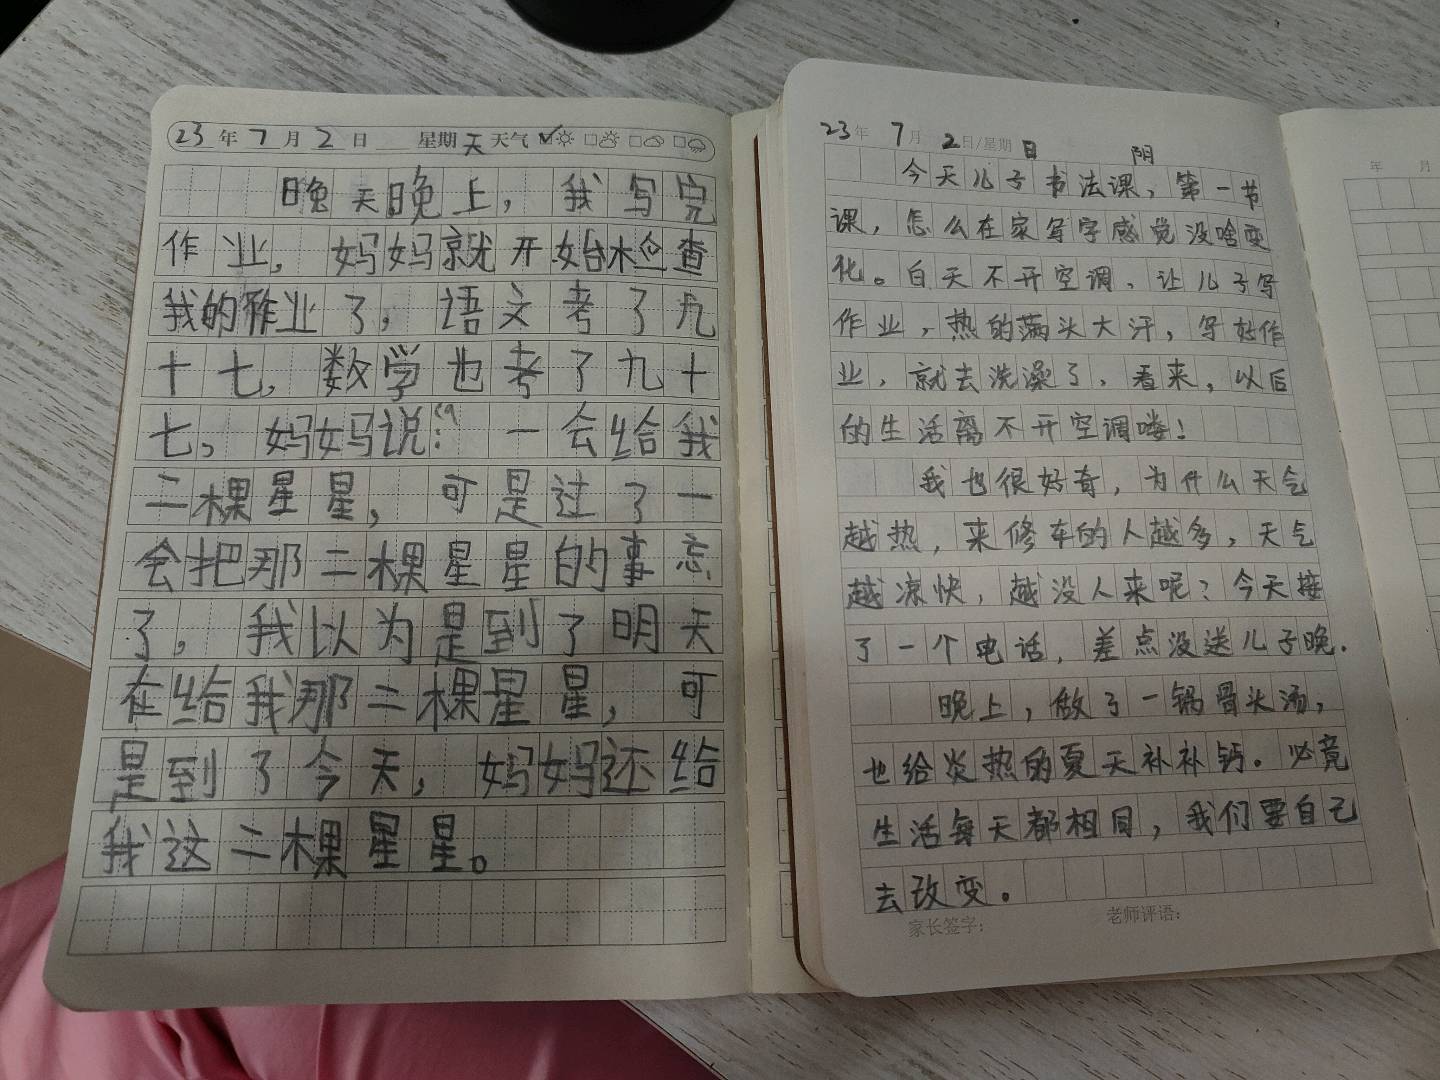 23年7月2日 星期天 天气
晚天晚上，我写完
作业，妈妈就开始检查
我的作业了，语文考了九
十七，数学也考了九十
七，妈妈说：“一会给我
二棵星星，可是过了一
会把那二棵星星的事忘
了。我以为是到了明天
在给我那二棵星星，可
是到了今天，妈妈还给
我这二棵星星。
23年7月2日/星期日 阴
今天儿子书法课，第一节
课，怎么在家写字感觉没啥变
化。白天不开空调，让儿子写
作业，热的满头大汗，写好作
业，就去洗澡了，看来，以后
的生活离不开空调喽！
我也很好奇，为什么天气
越热，来修车的人越多，天气
越凉快，越没人来呢？今天接
了一个电话，差点没送儿子晚.
晚上，做了一锅骨头汤，
也给炎热的夏天补补钙。必竟
生活每天都相同，我们要自己
去改变。
家长签字：
老师评语：
年 月